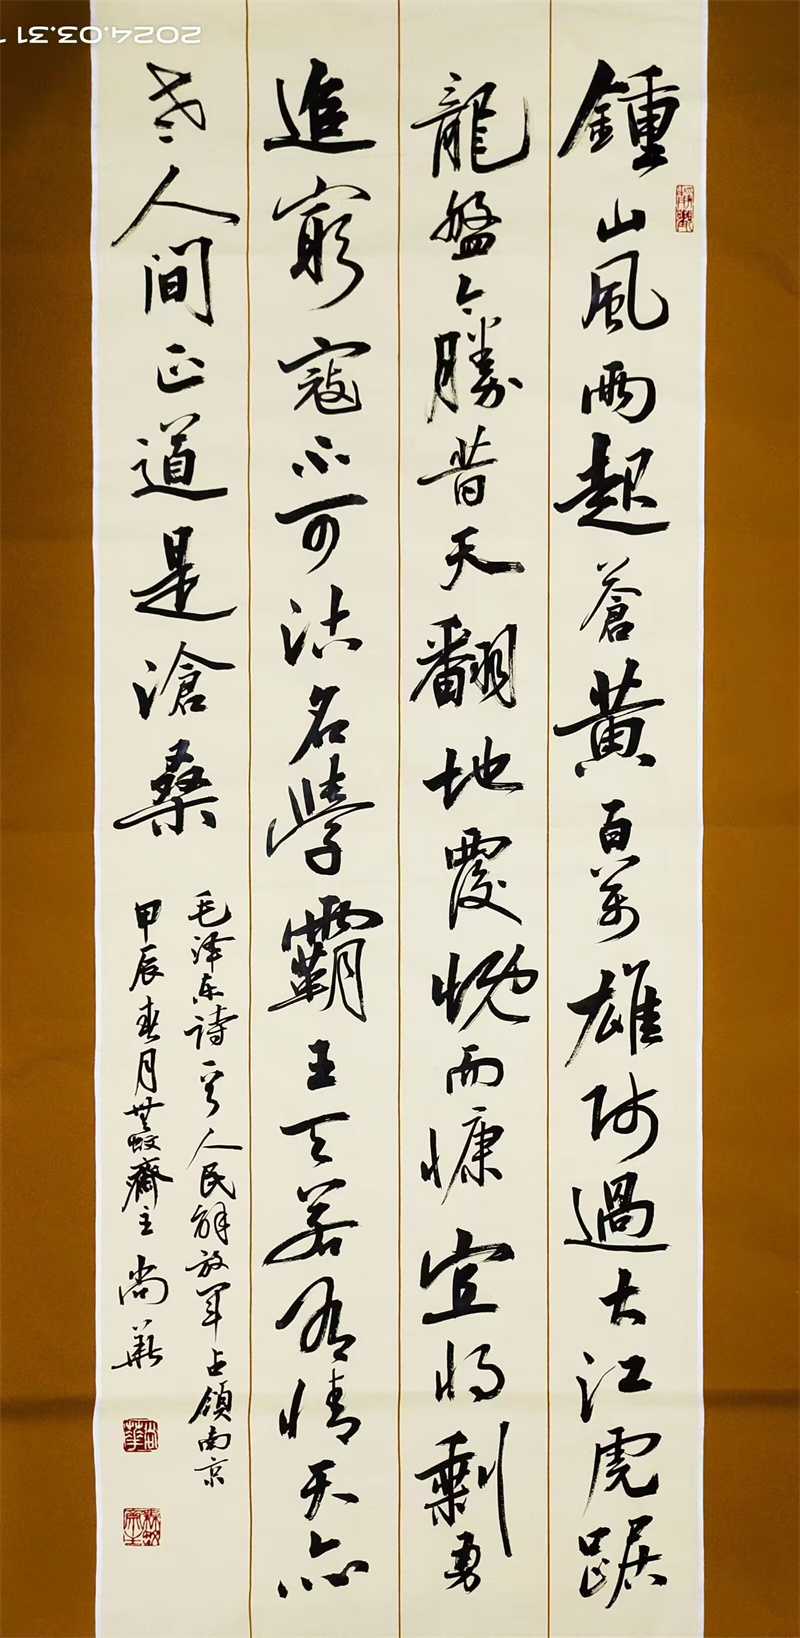 鍾山風雨起蒼黃百萬雄师過大江虎踞
龍盤今勝昔天翻地覆慨而慷宜将剩勇
追窮寇不可沽名學霸王天若有情天亦
老人间正道是滄桑
毛泽东诗一首人民解放军占领南京
甲辰春月無蚊齋主尚華
尚華
2024.03.31